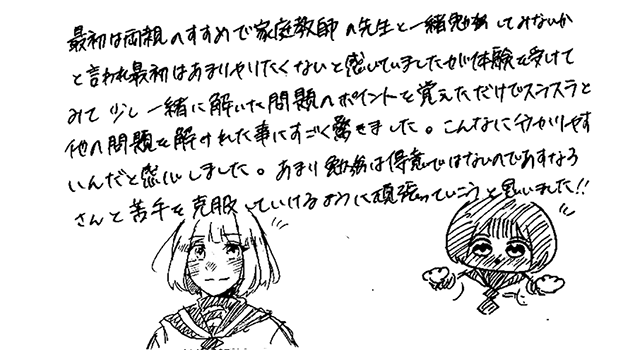 最初は両親のすすめで家庭教師の先生と一緒勉強してみないか
と言われ最初はあまりやりたくないと感じていましたが体験を受けて
みて少し一緒に解いた問題のポイントを覚えただけでスラスラと
他の問題を解けれた事にすごく驚きました。こんなに分かりやす
いんだと感じしました。あまり勉強は得意ではないのであすなろ
さんと苦手を克服していけるように頑張っていこうと思いました!!